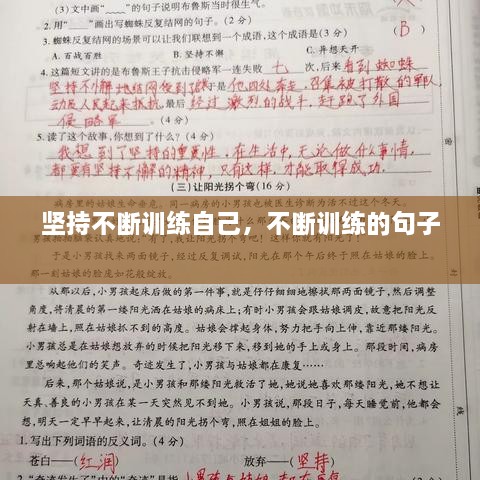 (3)文中"﹏﹏"的句子说明布鲁斯当时很生气。
2.用"——"画出写蜘蛛反复结网的句子。(2分)
3.蜘蛛反复结网的场景可以让我们联想到一个成语,这个成语是(3分)
(B)
A.百战百胜 B.坚持不懈 C.异想天开
4.这篇短文讲的是布鲁斯王子抗击侵略军一连失败 七 次,后来 看到蜘蛛
坚持不懈地结网 于是 他四处奔走,召集被打散的军队,
动员人民起来抵抗,最后 经过激烈的战斗,赶跑了外国
侵略军 。(4分)
5.读了这个故事,你想到了什么?(4分)
我想到了坚持的重要性,在生活中,无论做什么事情,
都要有坚持不懈的精神,只有这样,才能取得成功.
(三)让阳光拐个弯(16分)
坚持不断训练自己,不断训练的句子
于是小男孩找来两面镜子,经过反复调试,阳光在那个午后终于照在姑娘的
一刻姑娘的脸庞如花般绽放。
从那以后,小男孩起床后做的第一件事,就是仔仔细细地擦拭那两面镜子,然后调整
角度,将清晨的第一缕阳光洒在姑娘的病床上;有时小男孩会跟姑娘调皮,故意把阳光反
射在墙上,照在姑娘抓不到的高度。姑娘会撑起身体,努力把手向上伸,靠近那缕阳光。
小男孩总是在姑娘想放弃的时候把阳光移下来,移到她的手上或身上。那段时间,病房
里总响起他们的笑声。奇迹发生了,小男孩与姑娘都在康复……
后来,那个姑娘说,是小男孩和那缕阳光救活了她,她说她喜欢那缕阳光,她不想让
天真、善良的小男孩在某一天突然见不到她。小男孩说,那段日子,每天睡觉前,他都会
想,明天一定早早起来,让清晨的阳光拐个弯,照在姐姐的脸上。
1.写出下列词语的反义词。(4分)
苍白——(红润) 放弃——(坚持)